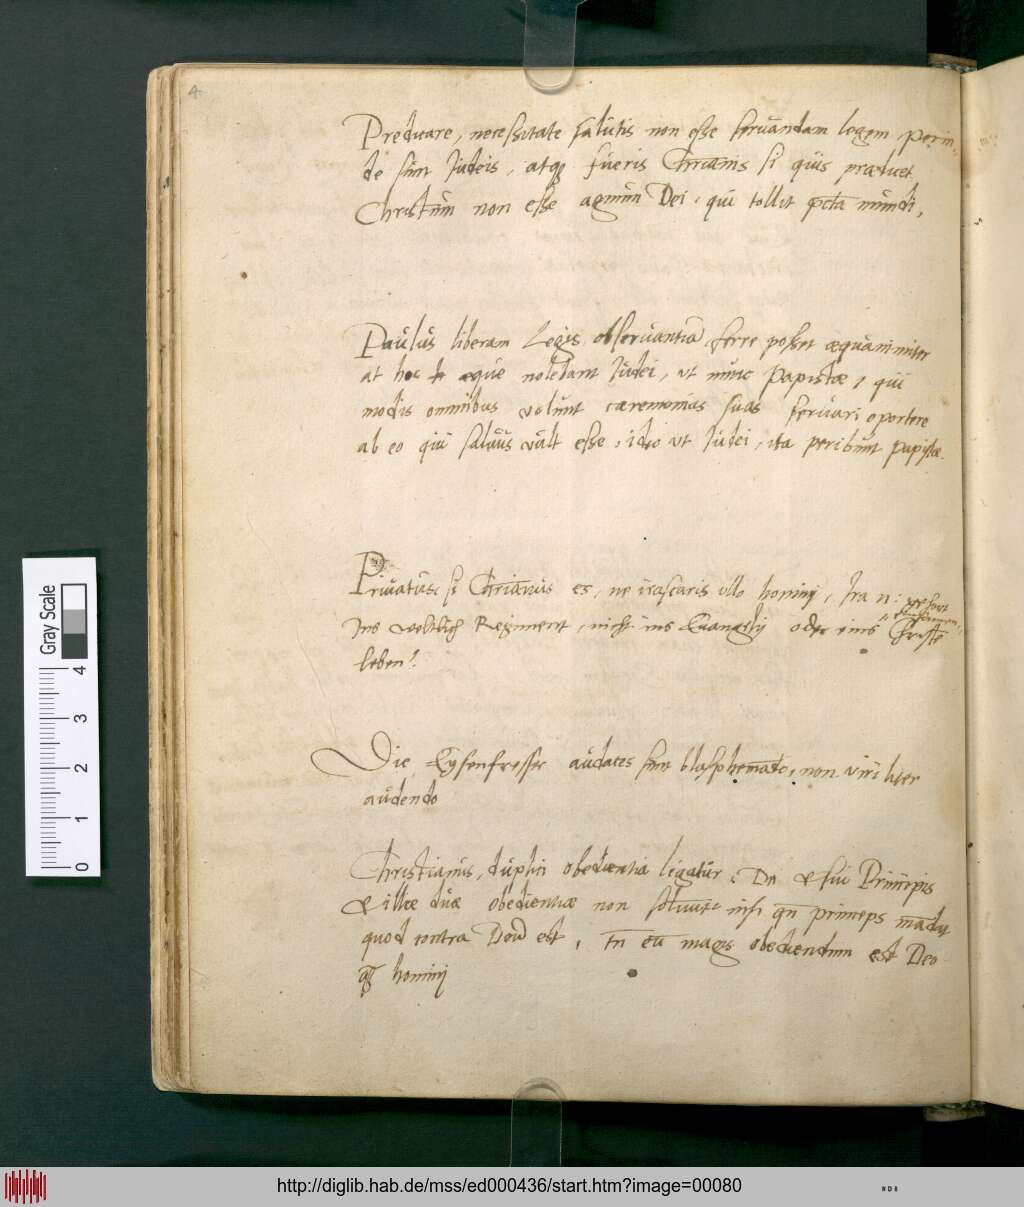 Preduare, necessitate salutis non esse servandam legem, perin=
de sunt Judeis, atq fueris Chrianis si quis praeduet
Christum non esse agnum Dei, qui tollit pcta mundi,
Paulus liberam Legis observantia ferre posset aequanimiter
at hoc aeque nolebant Judei, ut nunc Papistae, qui
modis omnibus volunt caeremonias suas servari oportere
ab eo qui saluus vult esse, ideo ut Judei, ita peribunt papistae.
Privatus si Chrianus es, ne irascaris ullo homini, Ira n: gehort
Ins weltlich Regiment, nicht ins Evangelij oder eins Christe
leben?
Die Eysenfresser audaces sunt blasphemado, non viriliter
audendo
Christianus, duplici obedientia ligatur, Dn & sui Principis
& illae duae obedientiae non nisi qn princeps madat
quod contra Deu est, tn eu magis obediendum est Deo
q hominj
Gray Scale
0 1 2 3 4
http://diglib.hab.de/mss/ed000436/start.htm?image=00080